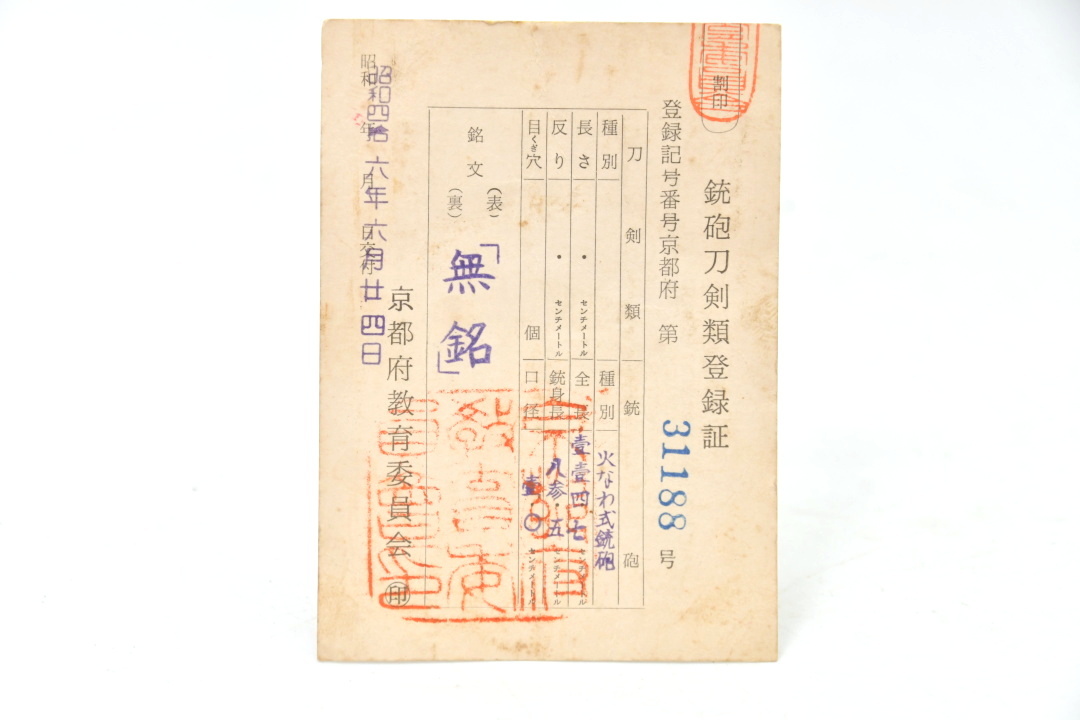 割印
銃砲刀剣類登録証
登録記号番号京都府 第 31188 号
刀剣類 銃砲
種別 種別 火なわ式銃砲
長さ ・ センチメートル 全長 壹壹四・七 センチメートル
反り ・ センチメートル 銃身長 八参・五 センチメートル
目くぎ穴 個 口径 壹・〇 センチメートル
銘文 (表) (裏) 「無銘」
京都府教育委員会 ㊞
昭和 年 月 日交付
昭和四拾六年六月廿四日